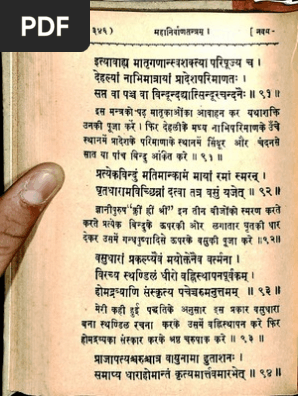 PDF
३४६) महानिर्वाणतन्त्रम् । [ नवम-
इत्यावाह्य मातृगणान्स्वशक्त्या परिपूज्य च ।
देहल्यां नाभिमात्रायां प्रादेशपरिमाणतः ।
सप्त वा पश्च वा बिन्दून्दद्यात्सिन्दूरचन्दनैः ॥ ९१ ॥
इस मन्त्रको पढ़ मातृकाओंका आवाहन कर यथाशक्ति
उनकी पूजा करे । फिर देहलीके मध्य नाभिपरिमाणके ऊँचे
स्थानमें प्रादेशके परिमाणके स्थानमें सिंदूर और चंदनसे
सात वा पांच बिन्दु अंकित करे ॥ ९१ ॥
प्रत्येकबिन्दुं मतिमान्कामं मायां रमां स्मरन् ।
घृतधारामविच्छिन्नां दत्वा तत्र वसु यजेत् ॥ ९२ ॥
ज्ञानीपुरुष "क्लीं ह्रीं श्रीं" इन तीन बीजोंको स्मरण करते
करते प्रत्येक बिन्दुके ऊपरकी ओर लगातार घृतकी धार
देकर उसमें गन्धपुष्पादिसे ऊपरके वसुकी पूजा करे ॥९२॥
वसुधारां प्रकल्प्यैवं मयोक्तेनैव वर्त्मना ।
विरच्य स्थण्डिलं धीरो वह्निस्थापनपूर्वकम् ।
होमद्रव्याणि संस्कृत्य पचेच्चरुमनुत्तमम् ॥ ९३ ॥
मेरी कही हुई पद्धतिके अनुसार इस प्रकार वसुधारा
बना स्थण्डिल रचना करके उसमें वह्निस्थापन करे फिर
होमद्रव्यका संस्कार करके श्रेष्ठ चरुपाक करे ॥ ९३ ॥
प्राजापत्यश्चरुश्चात्र वायुनामा हुताशनः ।
समाप्य धाराहोमान्तं कृत्यमार्त्तवमारभेत् ॥ ९४ ॥